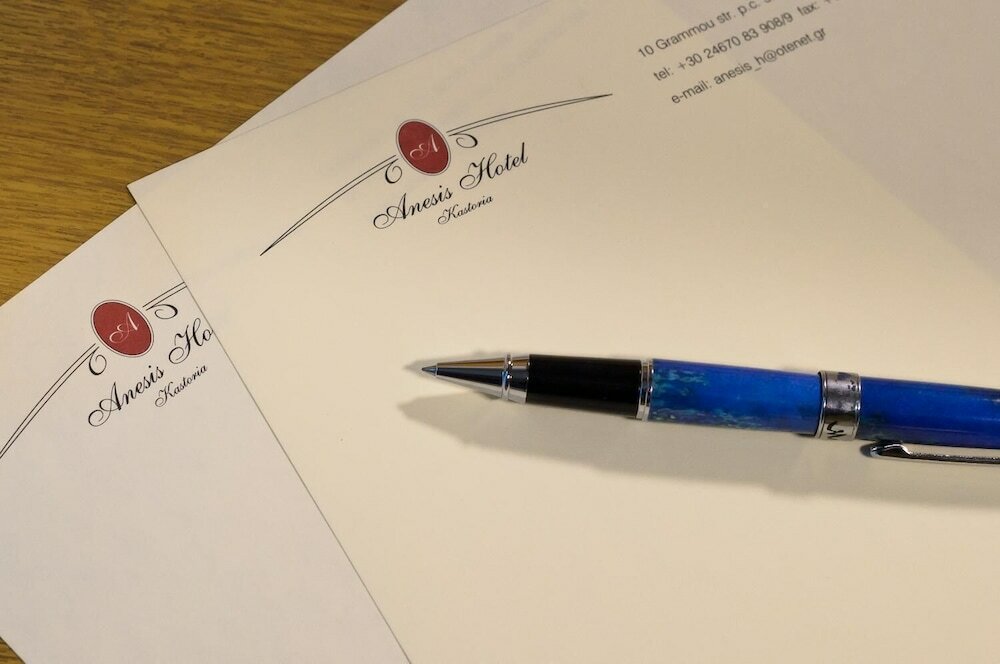 10 Grammou str. p.c.
tel: +30 24670 83 908/9 fax: +
e-mail: anesis_h@otenet.gr
A
Anesis Hotel
Kastoria
A
Anesis Ho
Kastoria